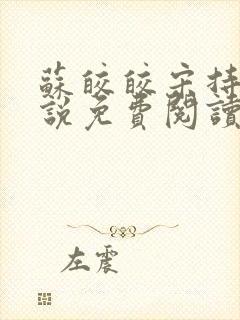 蘇皎皎宋持
說免費閱讀
左震